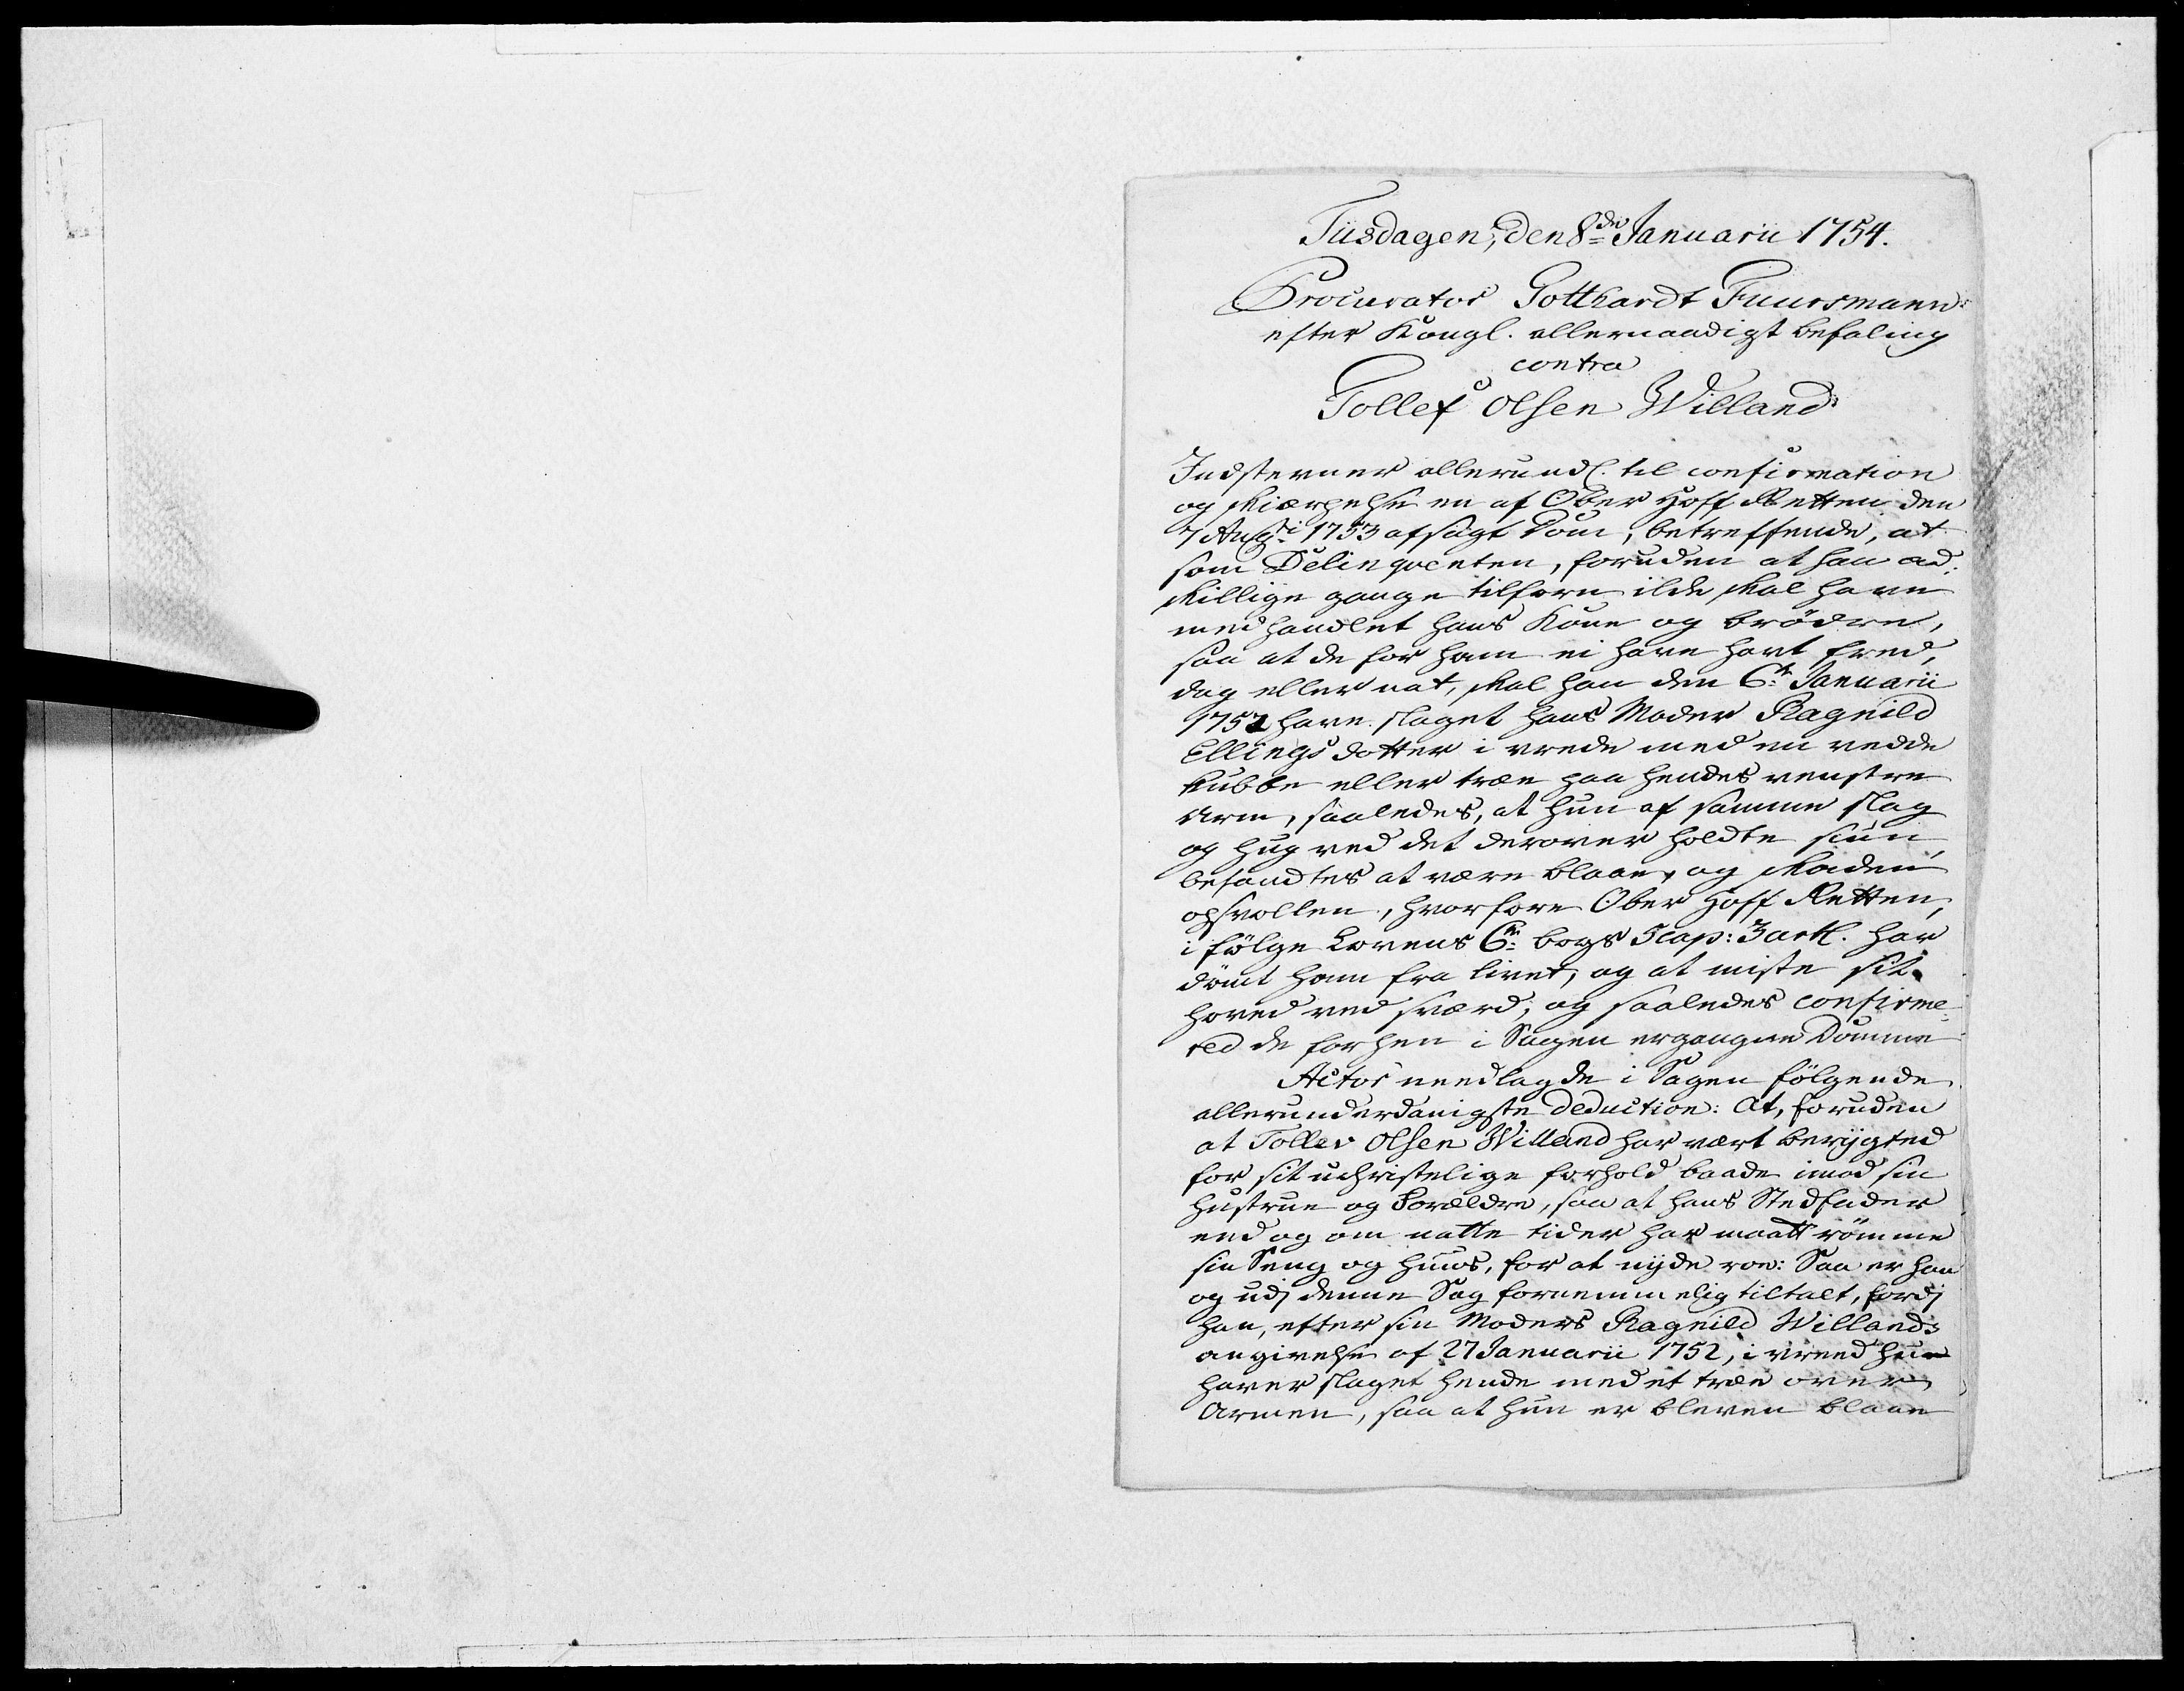 Tiisdagen, den 8de Januarii 1754.
Procurator Gotthardt Fuursmann
efter Kongl. allernaadigst befaling
contra
Tollef Olsen Willand
Indstevner allerundl. til confirmation
og skiærpelse en af Ober Hoff Retten den
7 Augti 1753 afsagt Dom, betreffende, at
som Delinqventen, foruden at han ad-
skillige gange tilforn ilde skal have
medhandlet hans Kone og brödre,
saa at de for ham ei have havt fred,
dag eller nat, skal han den 6te Januarii
1752 have slaget hans Moder Ragnild
Ellings dotter i vrede med en vedde
kubbe eller træe paa hendes venstre
Arm, saaledes, at hun af samme slag
og hug ved det derover holdte siun,
befandtes at være blaae, og skaden
opsvollen, hvorfore Ober Hoff Retten,
i fölge Lovens 6te bogs 5 cap: 3 artl. har
dömt ham fra livet, og at miste sit
hoved ved sværd, og saaledes confirme-
red de forhen i Sagen ergangne Domme
Actor needlagde i Sagen fölgende
allerunderdanigste deduction: At, foruden
at Tollev Olsen Willand har vært berygted
for sit uchristelige forhold baade imod sin
hustrue og Forældre, saa at hans Stedfader
end og om natte tider har maatt römme
sin Seng og huus, for at nyde roe: Saa er han
og udj denne Sag fornemmelig tiltalt, fordj
han, efter sin Moders Ragnild Willands
angivelse af 27 Januarii 1752, i vreed hue
haver slaget hende med et træe over
Armen, saa at hun er bleven blaae